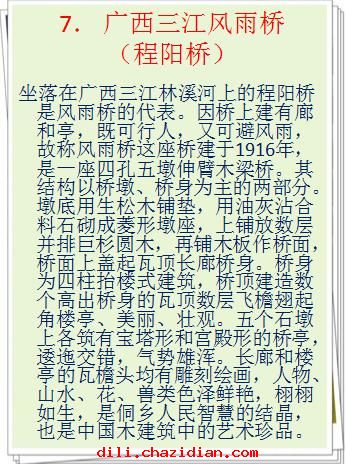 7. 广西三江风雨桥
（程阳桥）
坐落在广西三江林溪河上的程阳桥
是风雨桥的代表。因桥上建有廊
和亭，既可行人，又可避风雨，
故称风雨桥这座桥建于1916年，
是一座四孔五墩伸臂木梁桥。其
结构以桥墩、桥身为主的两部分。
墩底用生松木铺垫，用油灰沾合
料石砌成菱形墩座，上铺放数层
并排巨杉圆木，再铺木板作桥面，
桥面上盖起瓦顶长廊桥身。桥身
为四柱抬楼式建筑，桥顶建造数
个高出桥身的瓦顶数层飞檐翘起
角楼亭、美丽、壮观。五个石墩
上各筑有宝塔形和宫殿形的桥亭，
逶迤交错，气势雄浑。长廊和楼
亭的瓦檐头均有雕刻绘画，人物、
山水、花、兽类色泽鲜艳，栩栩
如生，是侗乡人民智慧的结晶，
也是中国木建筑中的艺术珍品。
dili.chazidian.com